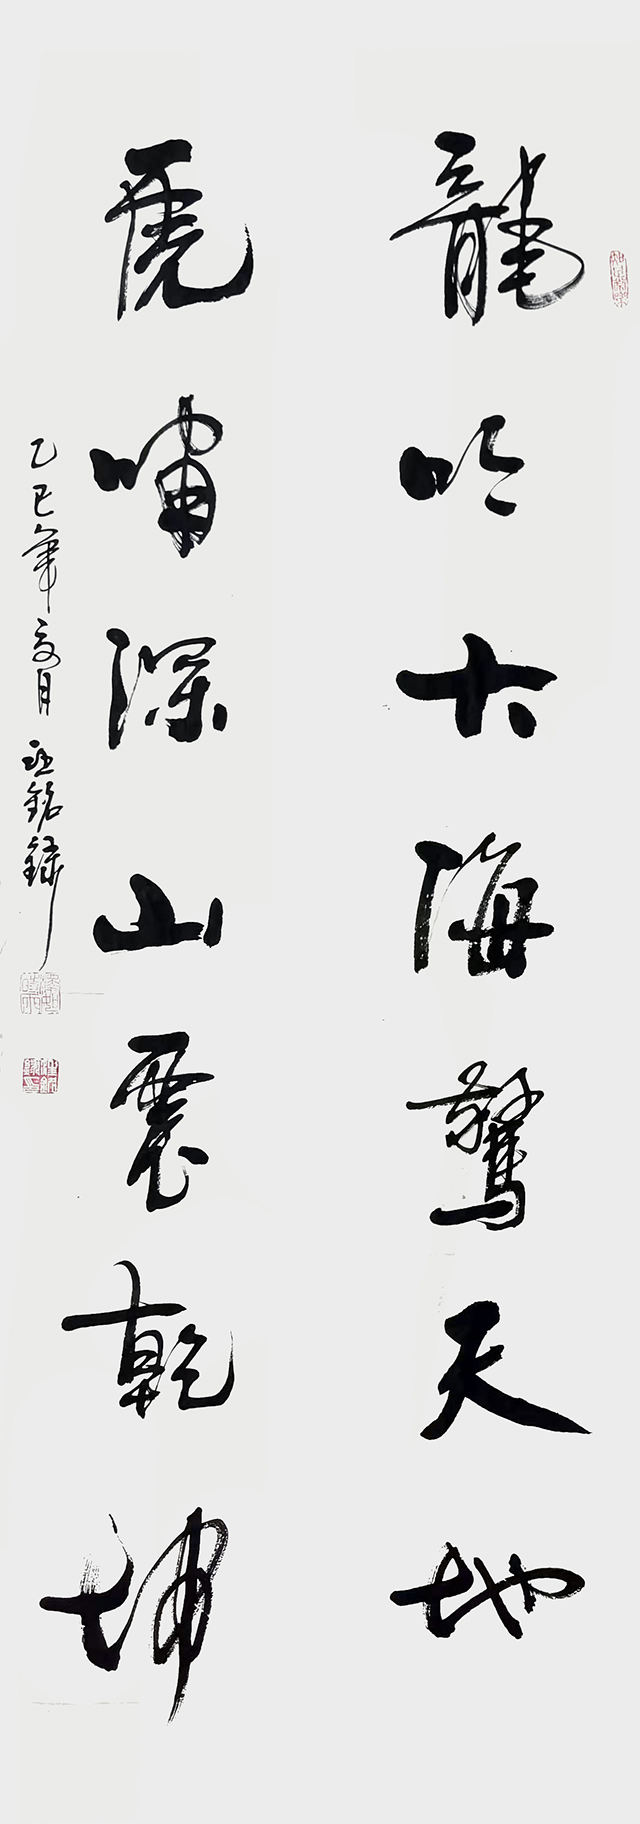 龍吟大海驚天地
虎嘯深山震乾坤
乙巳年夏月 銘録